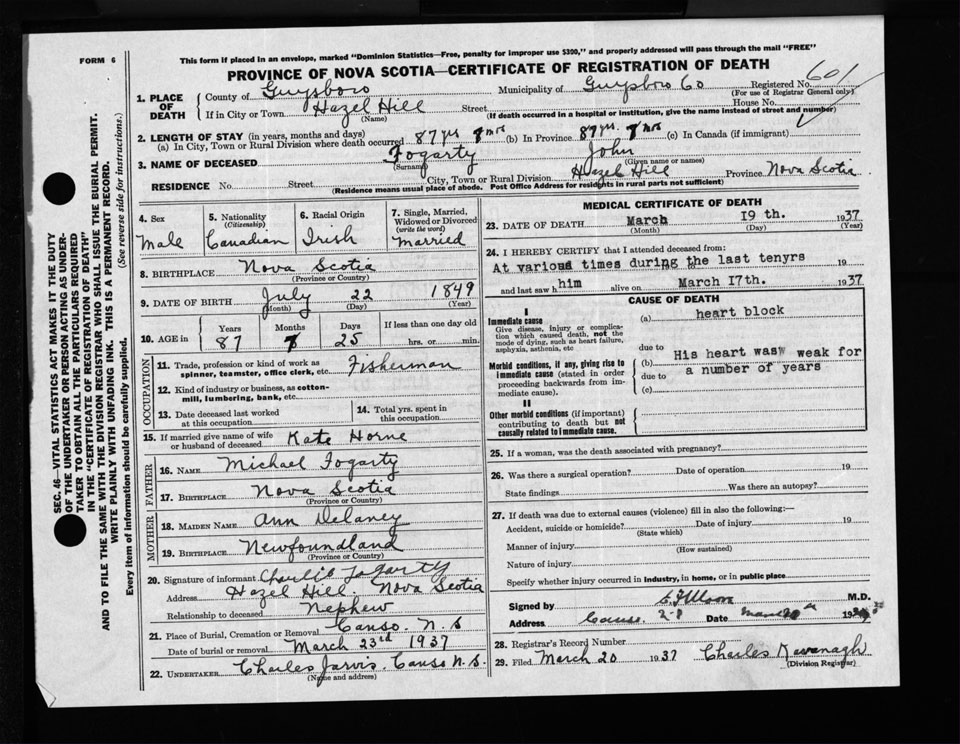 FORM 6
This form if placed in an envelope, marked "Dominion Statistics—Free, penalty for improper use $300," and properly addressed will pass through the mail "FREE"
PROVINCE OF NOVA SCOTIA—CERTIFICATE OF REGISTRATION OF DEATH
SEC. 46—VITAL STATISTICS ACT MAKES IT THE DUTY
OF THE UNDERTAKER OR PERSON ACTING AS UNDER-
TAKER TO OBTAIN ALL THE PARTICULARS REQUIRED
IN THE "CERTIFICATE OF REGISTRATION OF DEATH"
AND TO FILE THE SAME WITH THE DIVISION REGISTRAR WHO SHALL ISSUE THE BURIAL PERMIT.
WRITE PLAINLY WITH UNFADING INK. THIS IS A PERMANENT RECORD.
Every item of Information should be carefully supplied. (See reverse side for instructions.)
1. PLACE OF DEATH
County of Guysboro Municipality of Guysboro Co Registered No. 601
(For use of Registrar General only)
If in City or Town Hazel Hill Street House No.
(Name) (If death occurred in a hospital or institution, give the name instead of street and number)
2. LENGTH OF STAY (in years, months and days)
(a) In City, Town or Rural Division where death occurred 87 yrs 7 mos (b) In Province 87 yrs 7 mos (c) In Canada (if immigrant)
3. NAME OF DECEASED Fogarty John
(Surname) (Given name or names)
RESIDENCE No. Street City, Town or Rural Division Hazel Hill Province Nova Scotia
(Residence means usual place of abode. Post Office Address for residents in rural parts not sufficient)
4. Sex
Male
5. Nationality
(Citizenship)
Canadian
6. Racial Origin
Irish
7. Single, Married,
Widowed or Divorced
(write the word)
Married
8. BIRTHPLACE Nova Scotia
(Province or Country)
9. DATE OF BIRTH July 22 1849
(Month) (Day) (Year)
10. AGE in
Years Months Days If less than one day old
87 7 25 hrs. or min.
OCCUPATION
11. Trade, profession or kind of work as
spinner, teamster, office clerk, etc. Fisherman
12. Kind of industry or business, as cotton-
mill, lumbering, bank, etc.
13. Date deceased last worked
at this occupation
14. Total yrs. spent in
this occupation
15. If married give name of wife
or husband of deceased Kate Horne
FATHER
16. NAME Michael Fogarty
17. BIRTHPLACE Nova Scotia
(Province or Country)
MOTHER
18. MAIDEN NAME Ann Delaney
19. BIRTHPLACE Newfoundland
(Province or Country)
20. Signature of informant Charlie Fogarty
Address Hazel Hill. Nova Scotia
Relationship to deceased Nephew
21. Place of Burial, Cremation or Removal Canso. N.S
Date of burial or removal March 23rd 1937
22. UNDERTAKER Charles Jarvis. Canso N.S.
(Name and address)
MEDICAL CERTIFICATE OF DEATH
23. DATE OF DEATH March 19 th. 1937
(Month) (Day) (Year)
24. I HEREBY CERTIFY that I attended deceased from:
At various times during to the last tenyrs 19
and last saw h him alive on March 17th. 1937
CAUSE OF DEATH
I
Immediate cause
Give disease, injury or complica-
tion which caused death, not the
mode of dying, such as heart failure,
asphyxia, asthenia, etc
(a) heart block
due to
Morbid conditions, if any, giving rise to
immediate cause (stated in order
proceeding backwards from im-
mediate cause).
(b) His heart was weak for
due to a number of years
(c)
II
Other morbid conditions (if important)
contributing to death but not
causally related to immediate cause.
25. If a woman, was the death associated with pregnancy?
26. Was there a surgical operation? Date of operation 19
State findings Was there an autopsy?
27. If death was due to external causes (violence) fill in also the following:—
Accident, suicide or homicide? Date of injury 19
(State which)
Manner of injury
(How sustained)
Nature of injury
Specify whether injury occurred in industry, in home, or in public place
Signed by M.D.
Address Canso Date March
28. Registrar's Record Number
29. Filed March 20 1937 Charles Kavanagh
(Division Registrar)